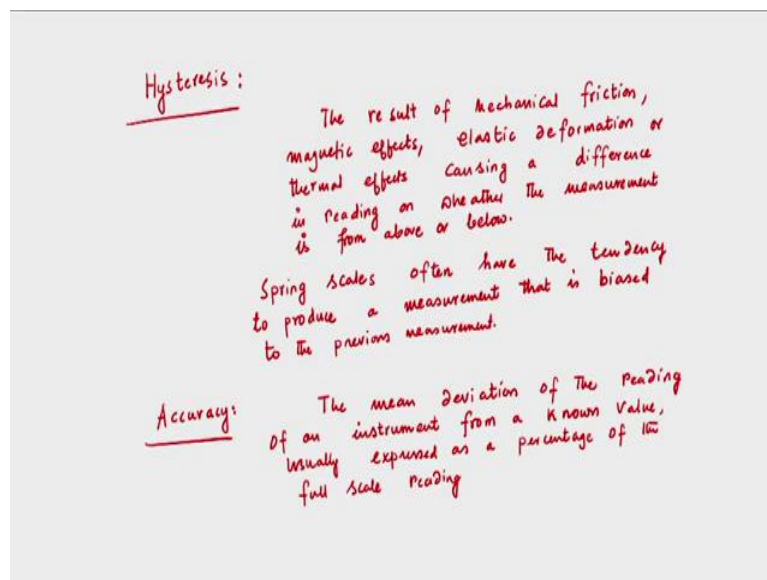 Hysteresis :
The result of Mechanical friction,
magnetic effects, elastic deformation or
thermal effects causing a difference
in reading on wheather the measurement
is from above or below.
Spring scales often have the tendency
to produce a measurement that is biased
to the previous measurement.
Accuracy:
The mean deviation of the reading
of an instrument from a known value,
usually expressed as a percentage of the
full scale reading